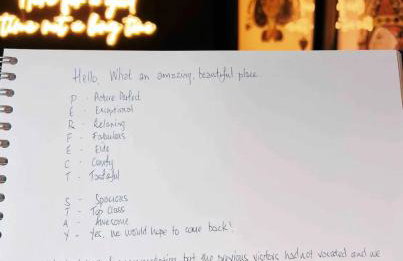 time not a long time
Hello, What an amazing, beautiful place
P - Picture Perfect
E - Exceptional
R - Relaxing
F - Fabulous
E - Elite
C - Comfy
T - Tasteful
S - Spacious
T - Top Class
A - Awesome
Y - Yes, we would hope to come back!
but the previous visitors had not vacated and we